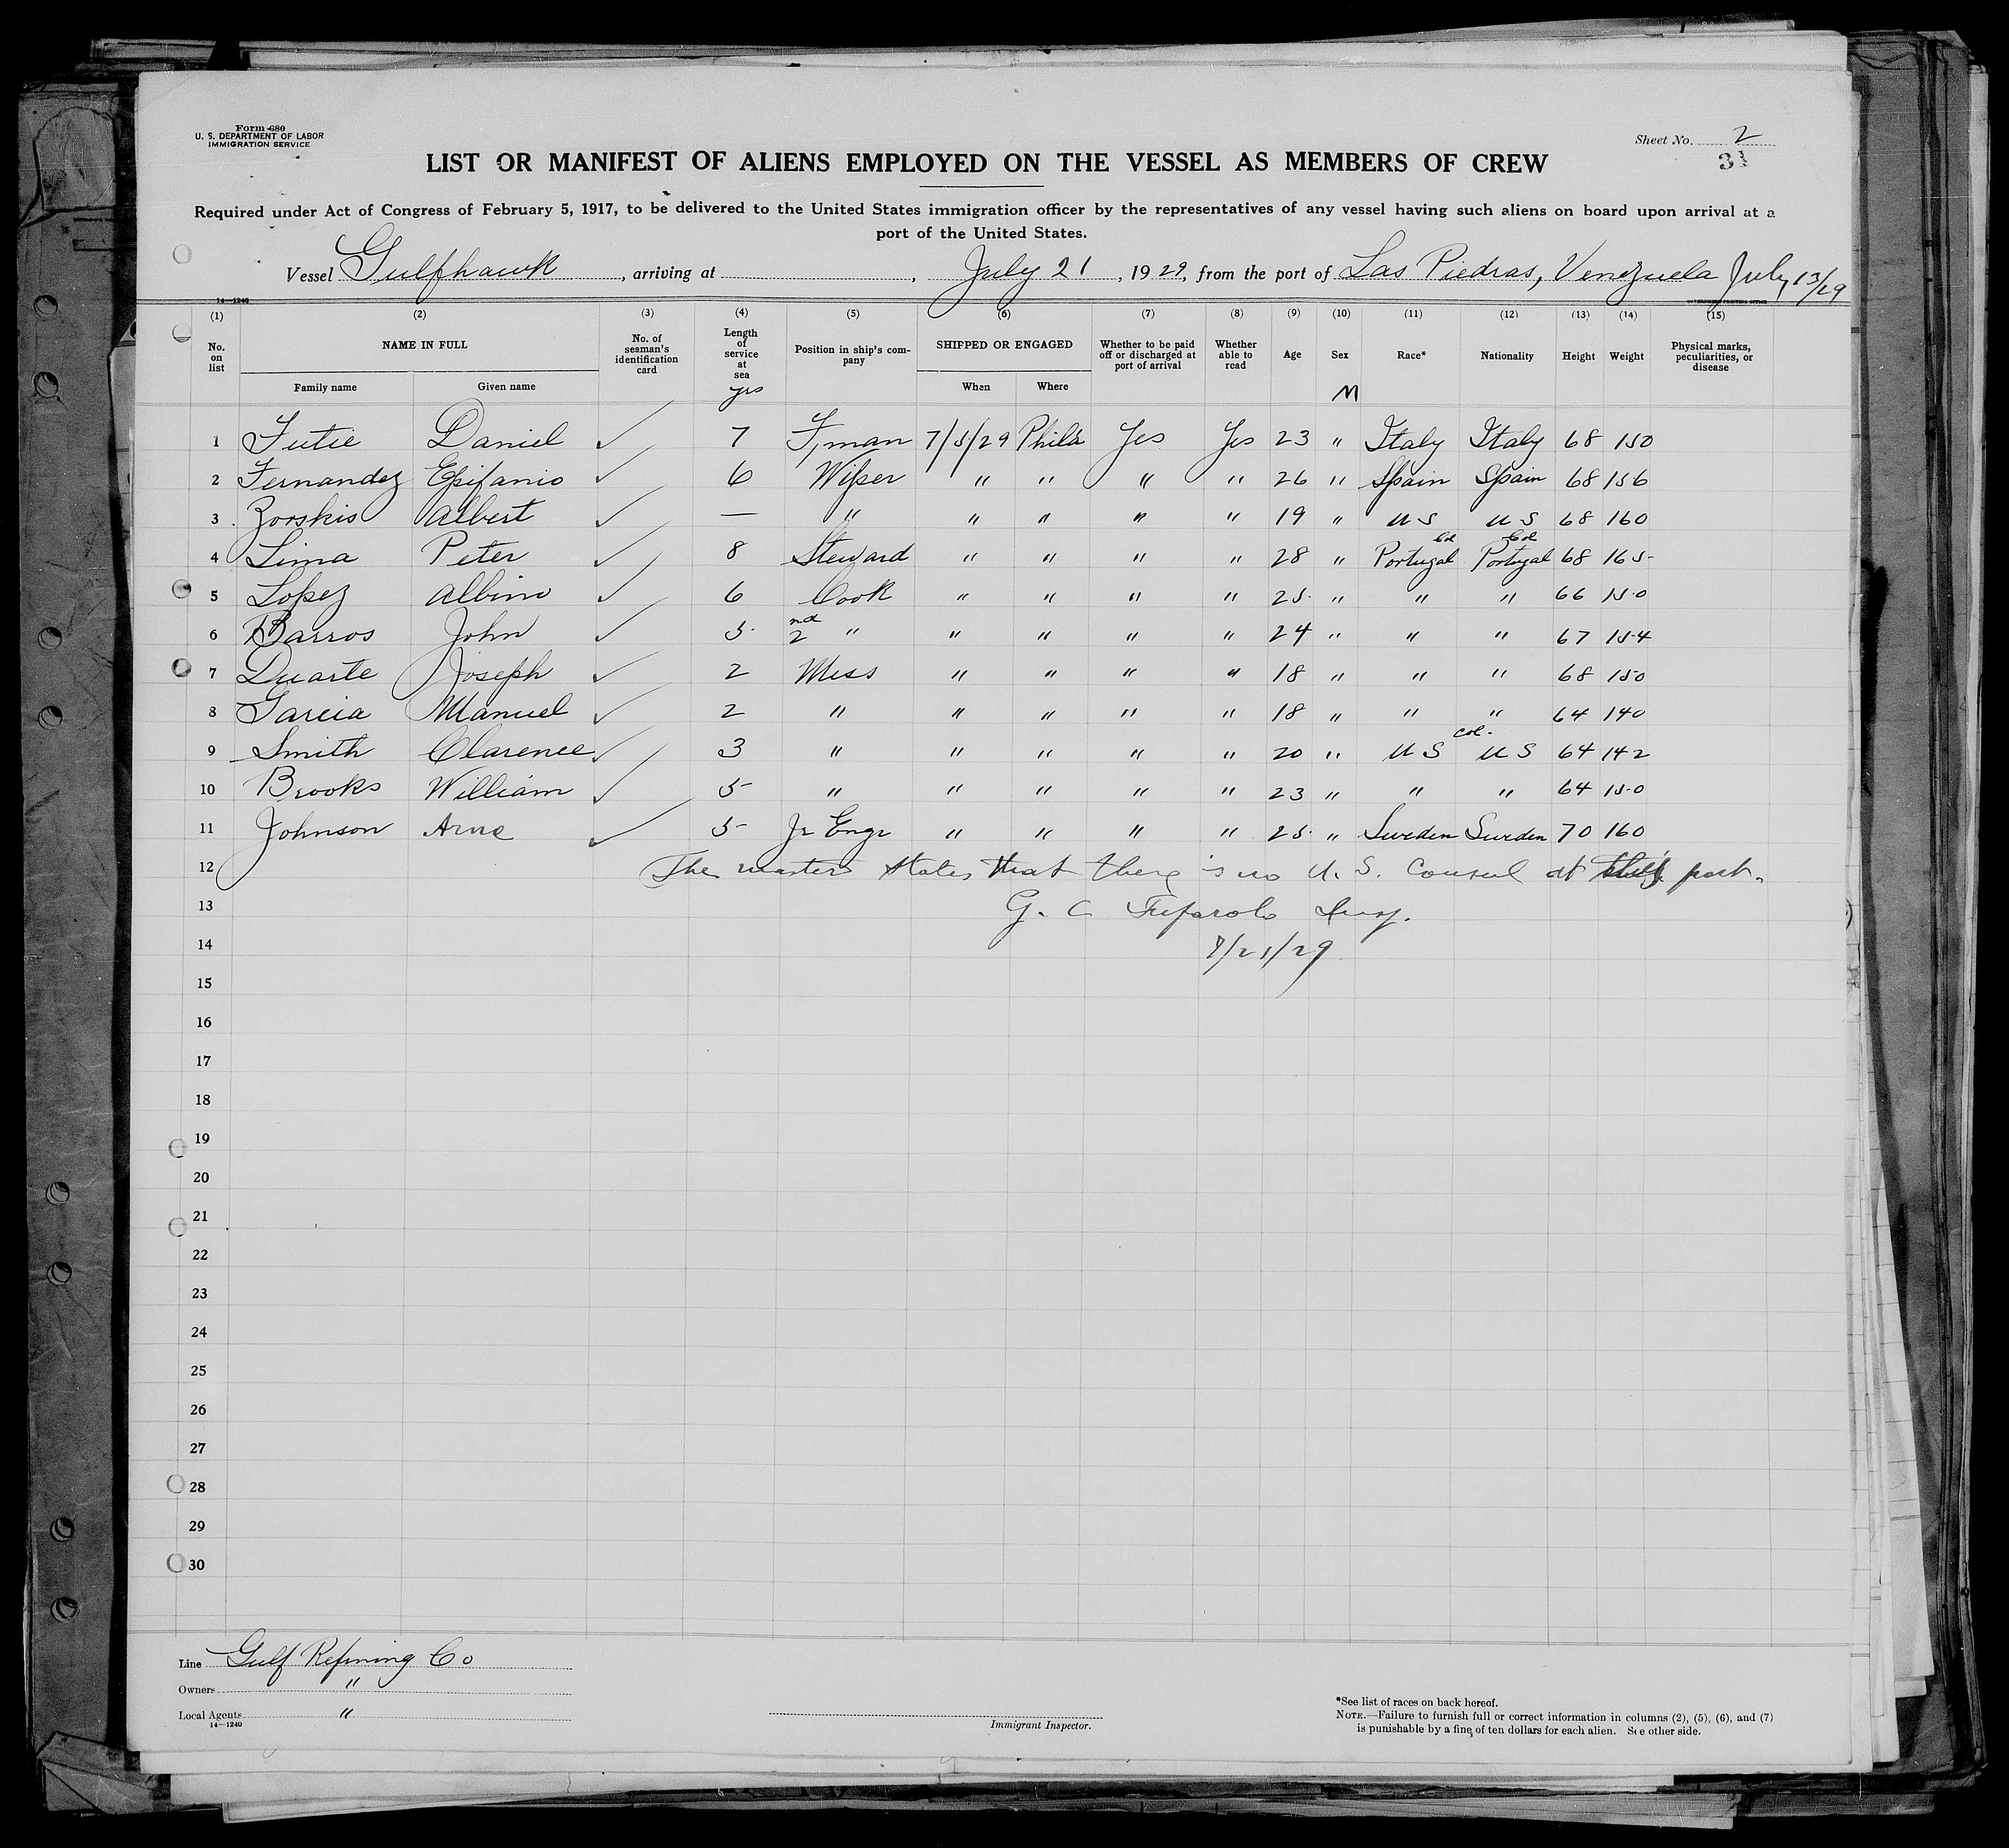 Form 680
U. S. DEPARTMENT OF LABOR
IMMIGRATION SERVICE
Sheet No. 2
31
LIST OR MANIFEST OF ALIENS EMPLOYED ON THE VESSEL AS MEMBERS OF CREW
Required under Act of Congress of February 5, 1917, to be delivered to the United States immigration officer by the representatives of any vessel having such aliens on board upon arrival at a
port of the United States.
Vessel Gulfhawk, arriving at , July 21, 1929, from the port of Las Piedras, Venezuela July 13/29
14—1240 GOVERNMENT PRINTING OFFICE
(1) (2) (3) (4) (5) (6) (7) (8) (9) (10) (11) (12) (13) (14) (15)
No. on list NAME IN FULL No. of seaman's identification card Length of service at sea Position in ship's company SHIPPED OR ENGAGED Whether to be paid off or discharged at port of arrival Whether able to read Age Sex Race* Nationality Height Weight Physical marks, peculiarities, or disease
Family name Given name yrs When Where M
1 Futie Daniel 7 F,man 7/5/29 Phila Yes Yes 23 " Italy Italy 68 150
2 Fernandez Epifanio 6 Wiper " " " " 26 " Spain Spain 68 156
3 Zorskis Albert — " " " " " 19 " U S U S 68 160
Col Col
4 Lima Peter 8 Steward " " " " 28 " Portugal Portugal 68 165
5 Lopez Albino 6 Cook " " " " 25 " " " 66 150
6 Barros John 5 2nd " " " " " 24 " " " 67 154
7 Duarte Joseph 2 Mess " " " " 18 " " " 68 150
8 Garcia Manuel 2 " " " " " 18 " " " 64 140
col.
9 Smith Clarence 3 " " " " " 20 " U S U S 64 142
10 Brooks William 5 " " " " " 23 " " " 64 150
11 Johnson Arne 5 Jr Engr " " " " 25 " Sweden Sweden 70 160
12 The master states that there is no U. S. Consul at this port.
13 G. C. Insp.
14 7/21/29
15
16
17
18
19
20
21
22
23
24
25
26
27
28
29
30
Line Gulf Refining Co
Owners "
Local Agents "
14—1240
Immigrant Inspector.
*See list of races on back hereof.
NOTE.—Failure to furnish full or correct information in columns (2), (5), (6), and (7)
is punishable by a fine of ten dollars for each alien. See other side.